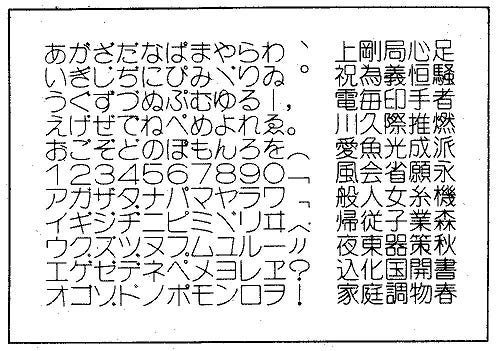 あがざだなぱまやらわ、 上剛局心足
いきじぢにぴみゞりゐ。 祝為義恒騒
うぐずづぬぷむゆるー, 電毎印手者
えげぜでねぺめよれゑ。 川久際推燃
おごぞどのぽもんろを︵ 愛魚光成派
1234567890⌒ 風会省願永
アガザダナパマヤラワ「 般人女糸機
イギジヂニピミヾリヰ 帰従子業森
ウグズヅヌプムユルー〃 夜東器策秋
エゲゼデネペメヨレヱ? 込化国開書
オゴゾドノポモンロヲ! 家庭調物春